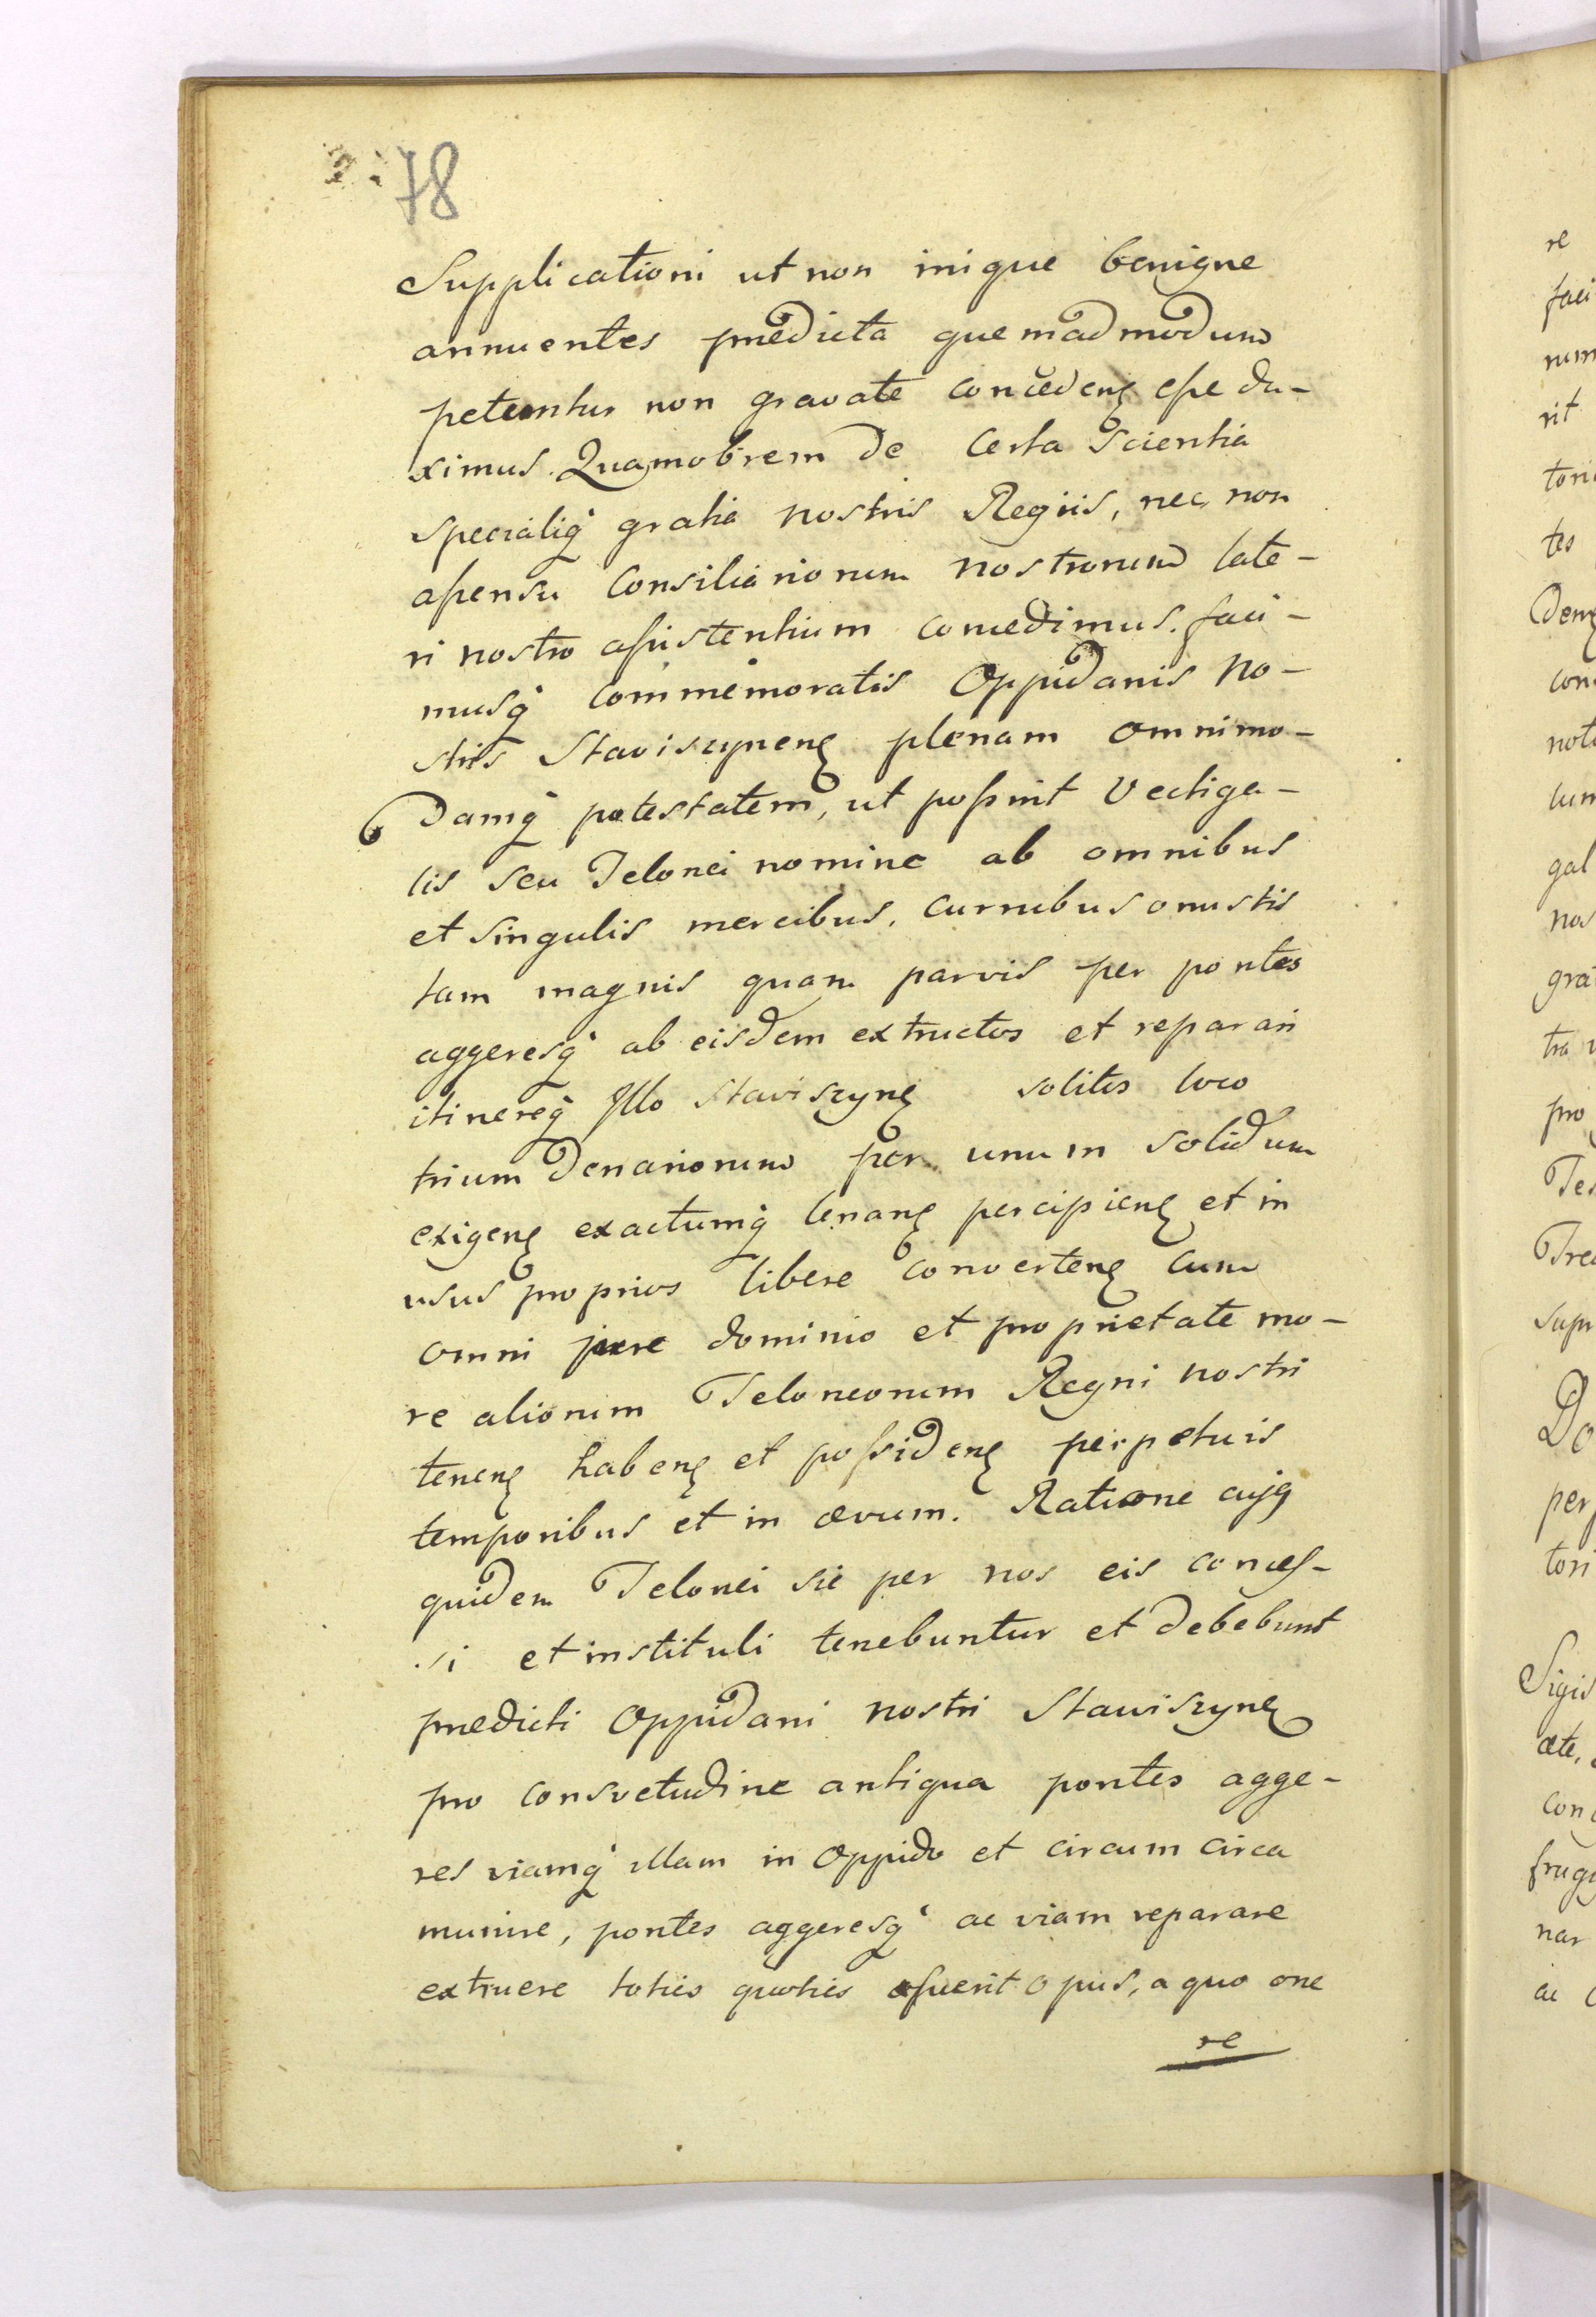 78
Supplicationi ut non inique benigne
annuentes prædicta quemadmodum
petuntur non gravate concedenȩ eſse du-
ximus. Quamobrem de Certa Scientia
Specialiq̃ gratia nostris Regiis, nec non
aſsensu Consiliariorum nostrorum late-
ri nostro aſsistentium concedimus. faci-
musq̃ commemoratis Oppidanis No-
stris Staviszynenȩ plenam omnimo-
Damq̃ potestatem, ut poſsint Vectiga-
lis seu Telonei nomine ab omnibus
et Singulis mercibus, curribus onustis
tam magnis quam parvis per pontes
aggeresq̃ ab eisdem extructos et reparari
itinereq̃ Illo Staviszynȩ solitos loco
trium Denariorum per unum solidum
exigenȩ exactumq̃ levanȩ percipienȩ et in
usus proprios libere convertenȩ Cum
omni jure dominio et proprietate mo-
re aliorum Teloneorum Regni nostri
tenenȩ habenȩ et poſsidenȩ perpetuis
temporibus et in ævum. Ratione cujȩ
quidem Telonei sic per nos eis conceſ-
si et instituli tenebuntur et debebunt
prædicti Oppidani nostri Staviszynȩ
pro Consvetudine antiqua pontes agge-
res viamq̃ illam in Oppido et circum circa
munire, pontes aggeresq̃ ac viam reparare
extruere toties quoties fuerit opus, a quo one
re
re
faci
num
rit
tes
gal
nos
pro
Do
per
tori
ac